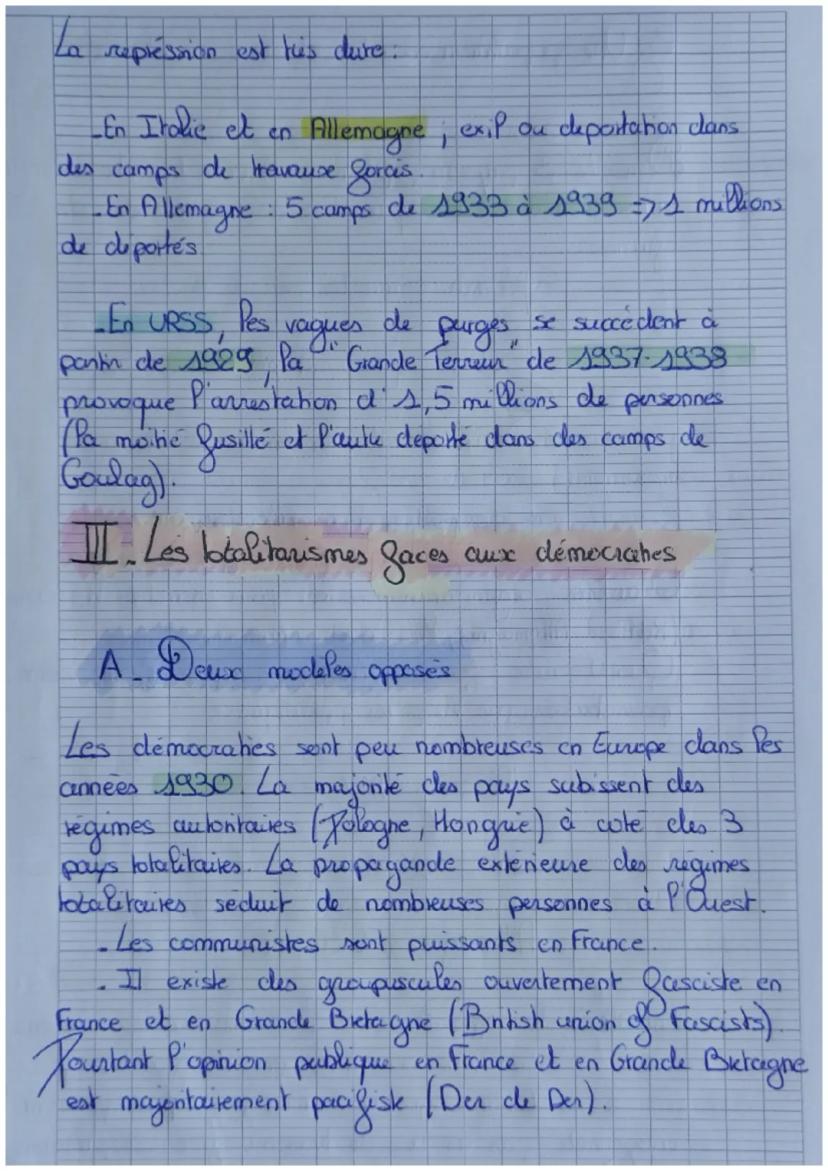 La répression est très dure :
- En Italie et en Allemagne, exil ou déportation dans
des camps de travaux forcés.
- En Allemagne : 5 camps de 1933 à 1939 => 1 millions
de déportés
- En URSS, les vagues de purges se succèdent à
partir de 1929, la "Grande Terreur" de 1937-1938
provoque l'arrestation d'1,5 millions de personnes
(la moitié fusillé et l'autre déporté dans des camps de
Goulag).
III. Les totalitarismes faces aux démocraties
A - Deux modèles opposés
Les démocraties sont peu nombreuses en Europe dans les
années 1930. La majorité des pays subissent des
régimes autoritaires (Pologne, Hongrie) à coté des 3
pays totalitaires. La propagande extérieure des régimes
totalitaires séduit de nombreuses personnes à l'Ouest.
- Les communistes sont puissants en France.
- Il existe des groupuscules ouvertement fasciste en
France et en Grande Bretagne (British union of Fascists).
Pourtant l'opinion publique en France et en Grande Bretagne
est majoritairement pacifiste (Der de Der).